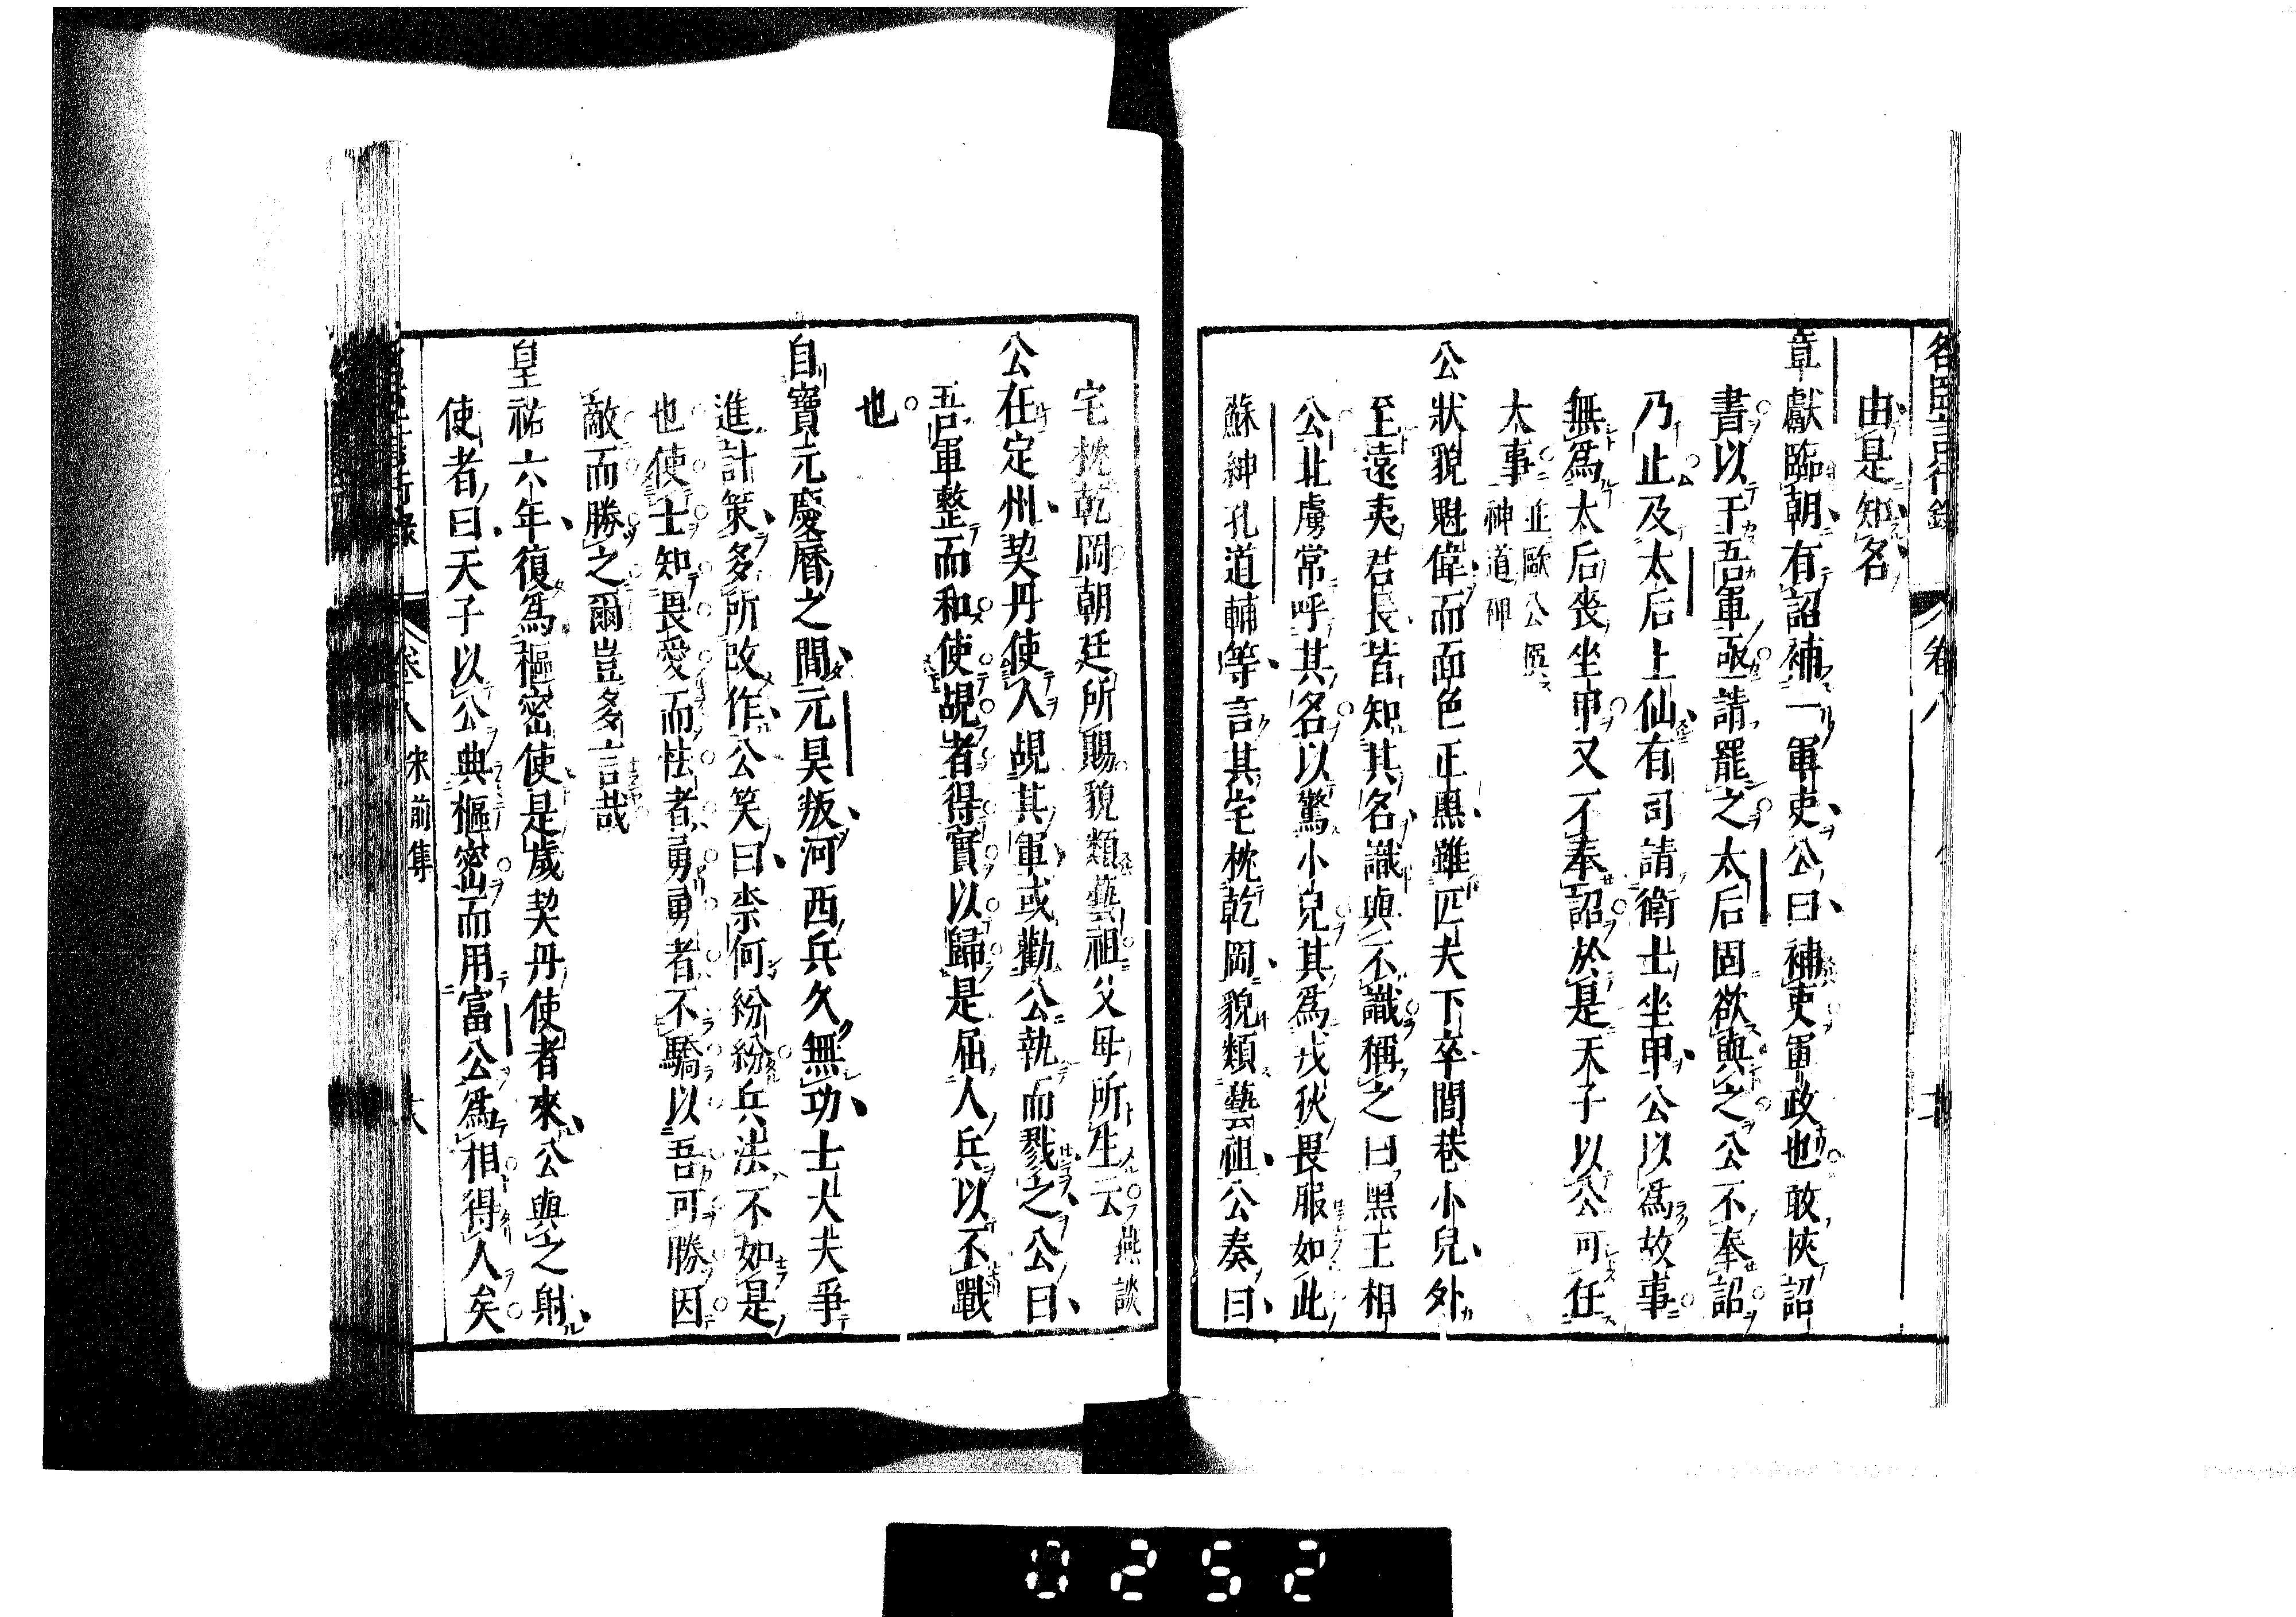 名臣言行錄 卷八
由是知名
章獻臨朝有詔補一軍吏公曰補吏軍政也敢挾詔
書以干吾軍亟請罷之太后固欲與之公不奉詔
乃止及太后上仙有司請衛士坐甲公以爲故事
無爲太后喪坐甲又不奉詔於是天子以公可任
大事 並歐公撰神道碑
公狀貌魁偉而面色正黑雖匹夫下卒閭巷小兒外
至遠夷君長皆知其名識與不識稱之曰黑王相
公北虜常呼其名以驚小兒其爲戎狄畏服如此
蘇紳孔道輔等言其宅枕乾岡貌類藝祖公奏曰
宅枕乾岡朝廷所賜貌類藝祖父母所生云 燕談
公在定州契丹使人覘其軍或勸公執而戮之公曰
吾軍整而和使覘者得實以歸是屈人兵以不戰
也
自寶元慶曆之間元昊叛河西兵久無功士大夫爭
進計策多所改作公笑曰柰何紛紛兵法不如是
也使士知畏愛而怯者勇勇者不驕以吾可勝因
敵而勝之爾豈多言哉
皇祐六年復爲樞密使是歲契丹使者來公與之射
使者曰天子以公典樞密而用富公爲相得人矣
卷八 宋前集
0252